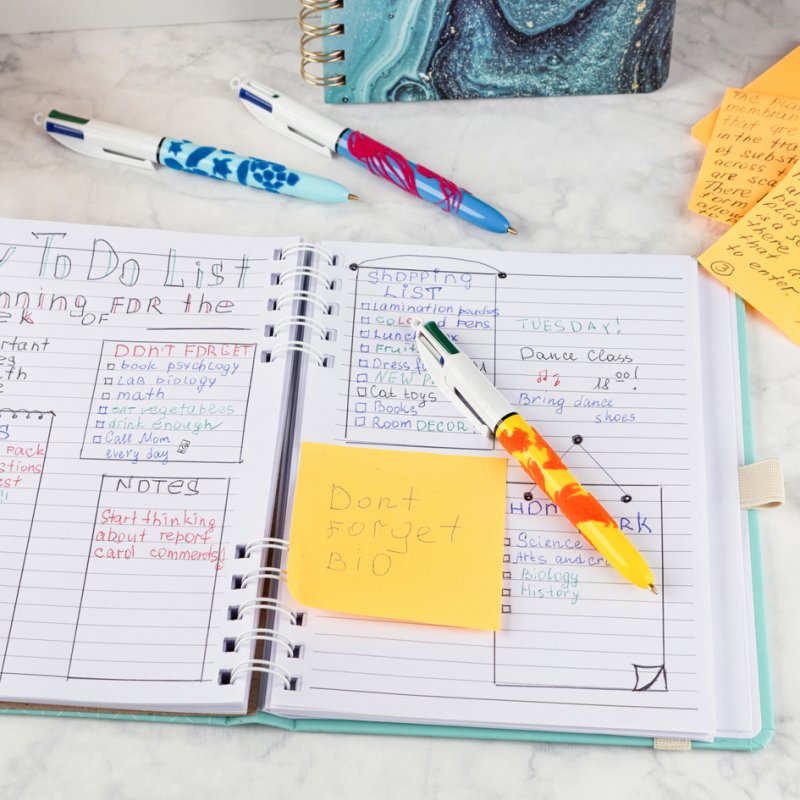 To Do List
FOR the
OF
DON'T FORGET
book psychlogy
LAB biology
math
eat vegetables
drink enough
Call Mom
every day
NOTES
Start thinking
about report
card comments!
SHOPPING
LIST
Lamination pouches
COLO d Pens
Lunch box
Fruit
Dress fu
NEW P
Cat toys
Books
Room DECOR
TUESDAY!
Dance Class
18 00!
Bring dance
shoes
Dont
Forget
BIO
HOM RK
Science
Arts and cra
Biology
History
The pla
membran
that are
in the tra
of subst
across
are sca
There
form
allow
is a s
there
that
to enter
3